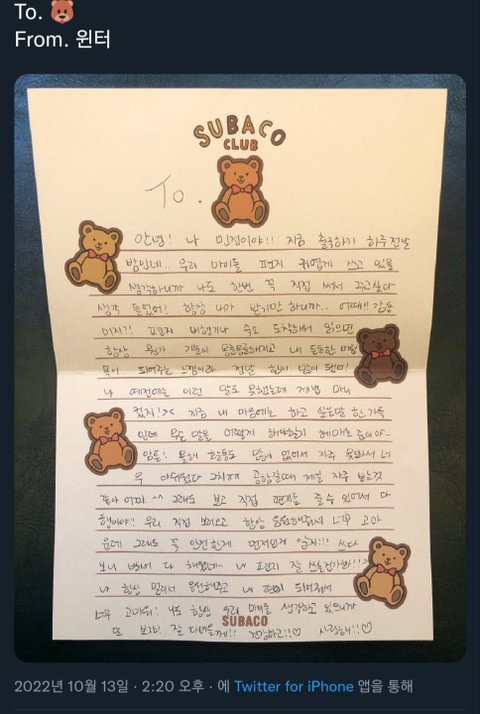 To. 🐻
From. 윈터
SUBACO
CLUB
To.
안녕! 나 민정이야!! 지금 출국하기 하루 전날
밤인데.. 우리 마이들 편지 귀엽게 쓰고 있을
생각하니까 나도 한번 꼭 직접 써서 주고싶다
생각 들었어! 항상 내가 받기만 하니까.. 어때!! 감동
이지?! 편지 비행기나 숙소 도착해서 읽으면
항상 뭔가.. 기분이 몽글몽글해지고 내 든든한 버팀
목이 되어주는 느낌이라 정말 힘이 많이 됐어!
나 예전에는 이런 말도 못했는데 제법 마니
컸지?>< 지금 내 마음에는 하고 싶은말 한가득
인데 무슨 말을 어떻게 해야할지 헤매는 중이야~
암튼! 올해 활동도 많이 없어서 자주 못봐서 너
무 아쉬웠다 그치ㅠㅠ 공항갈때 제일 자주 보는것
같아 어찌.. ^^ 그래도 보고 직접 편지를 줄 수 있어서 다
행이야!! 우리 직접 보러오고 항상 응원해줘서 너무 고마
운데 그래도 꼭 안전한게 먼저인거 알지!!? 쓰다
보니 벌써 다 채웠네~ 내 편지 잘 쓰는건가봐!!?
나 항상 멀리서 응원해주고 내 편이 되어줘서
너무 고마워! 나도 항상 우리 마이들 생각하고 있으니까
또 보자! 잘 다녀올게!! 건강하고!!♡ 사랑해!!♡
SUBACO
2022년 10월 13일 · 2:20 오후 · 에 Twitter for iPhone 앱을 통해